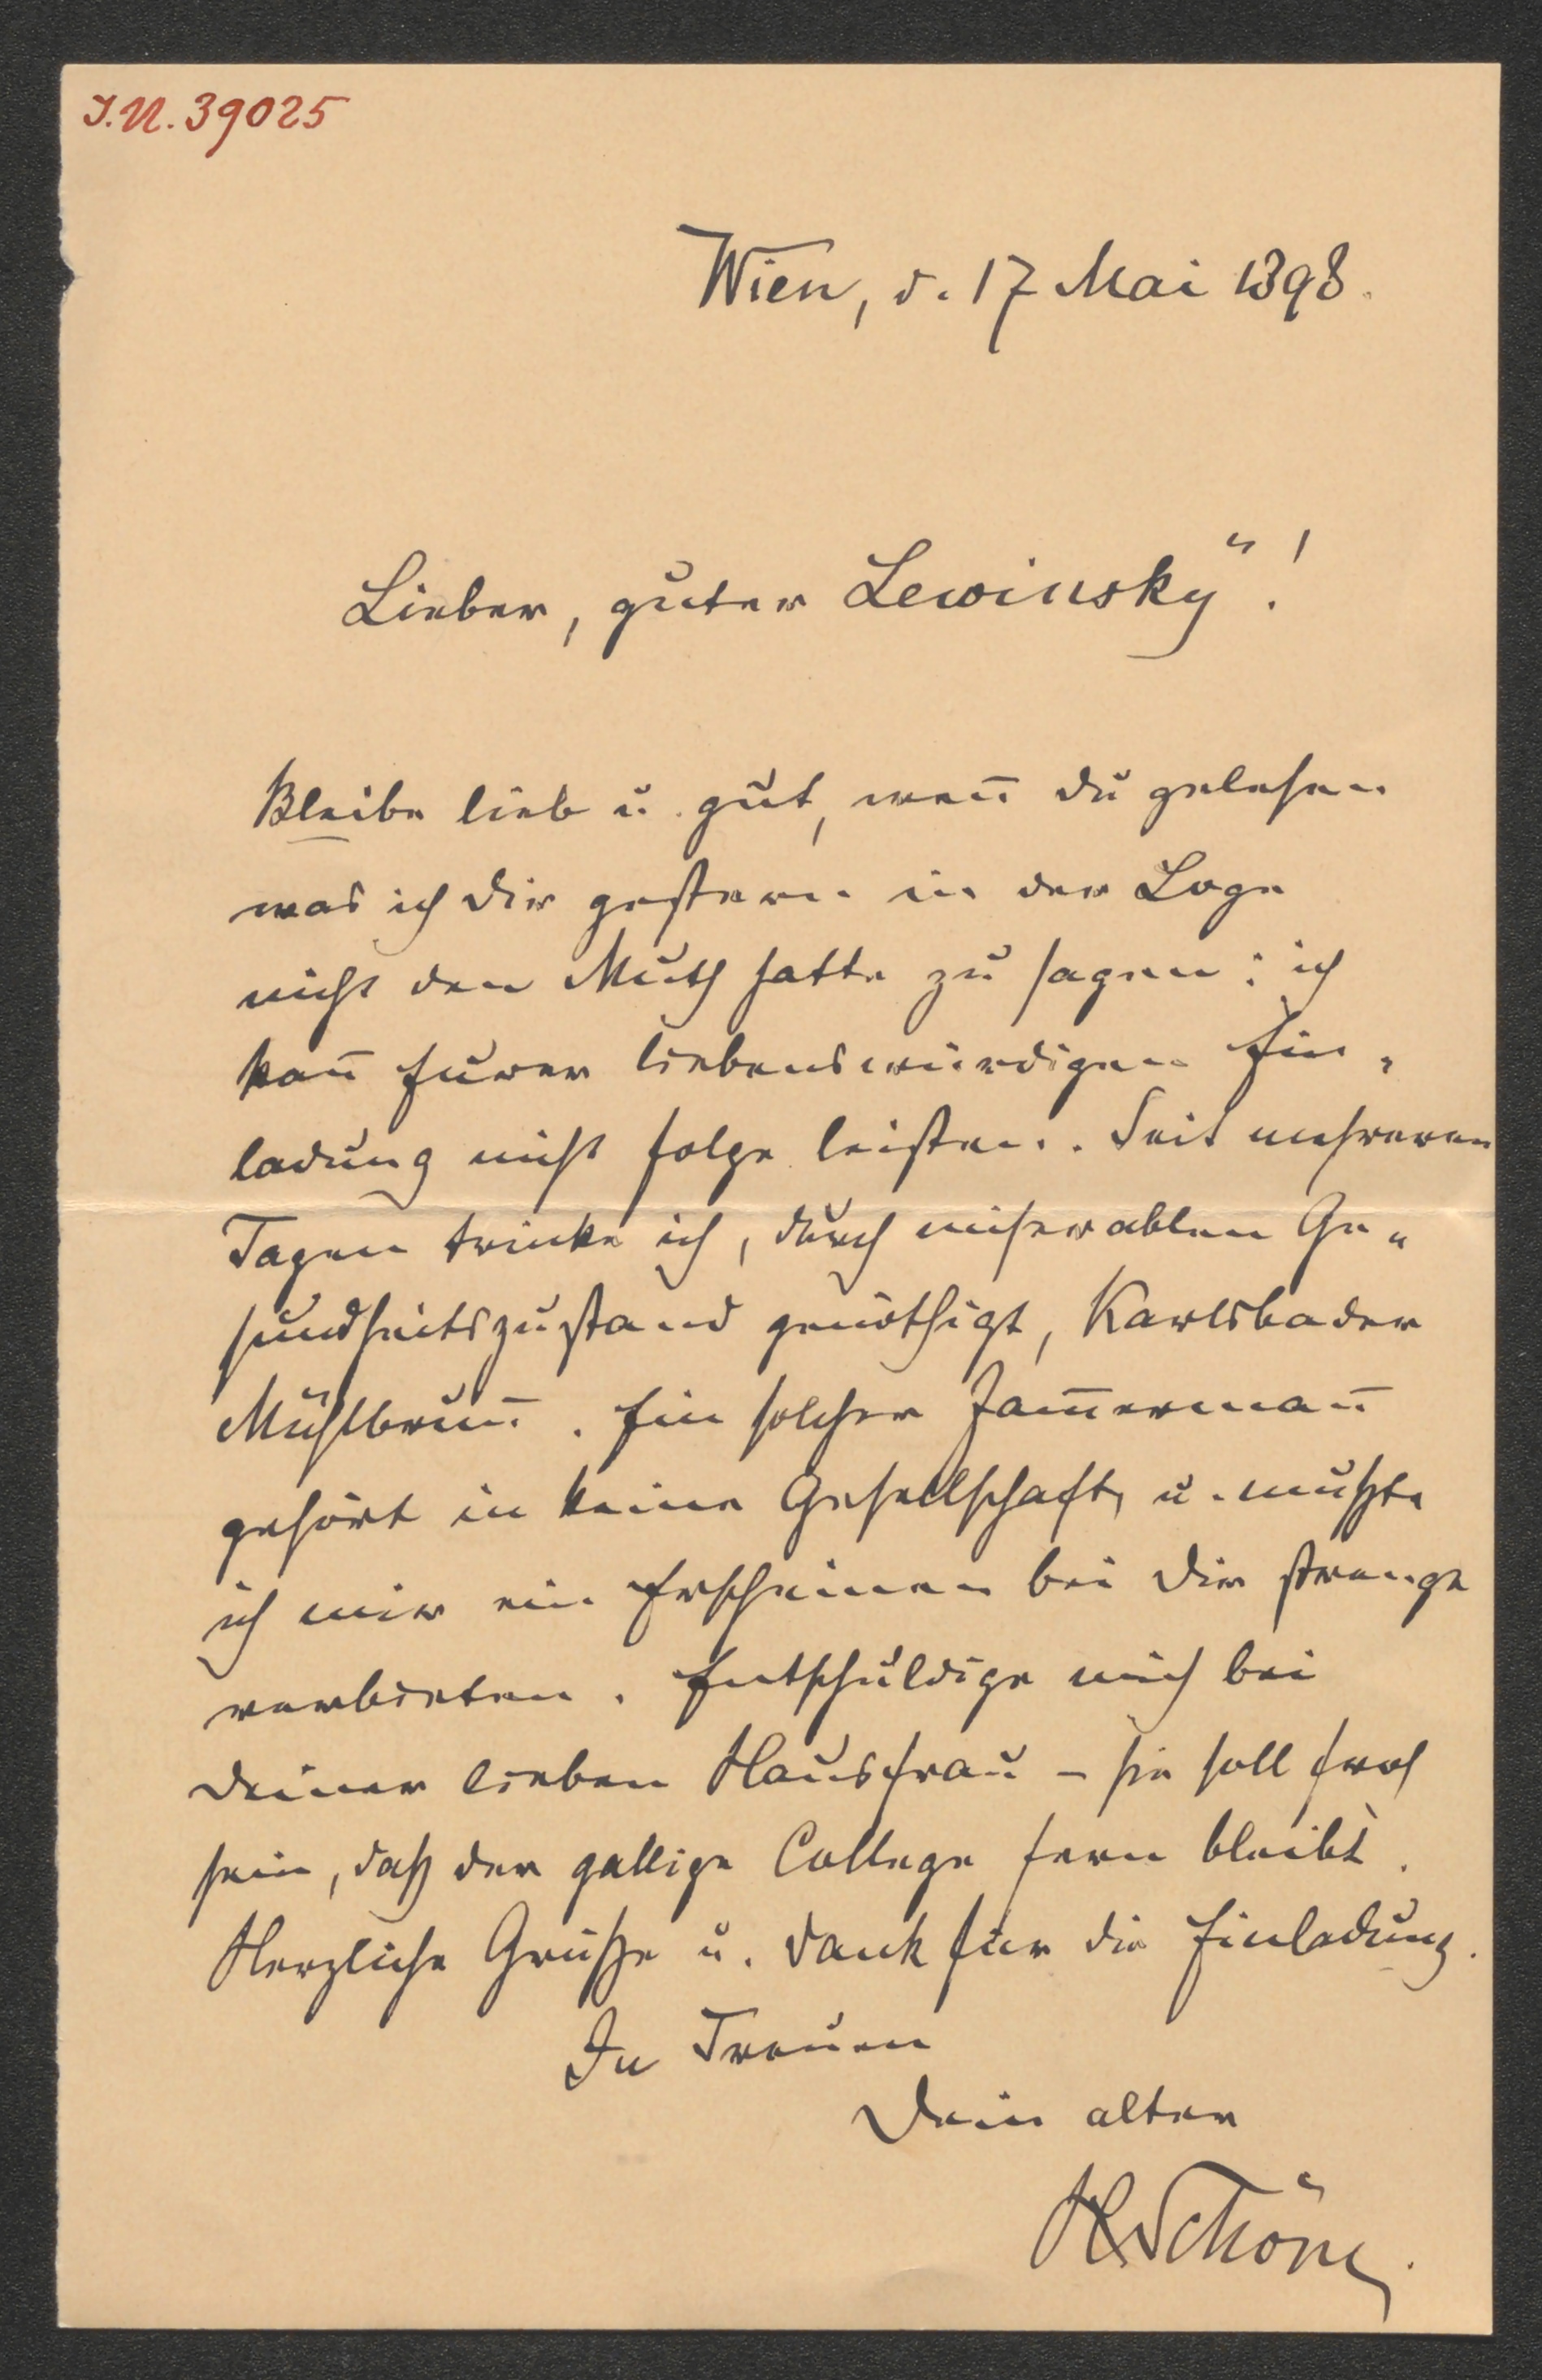 J.N. 39025
Wien, d. 17 Mai 1898.
Lieber, guter Lewinsky!
Bleibe lieb u. gut, wen̄ du gelesen
was ich dir gestern in der Loge
nicht den Muth hatte zu sagen: ich
kan̄ Eurer liebenswürdigen Ein-
ladung nicht folge leisten. Seit mehreren
Tagen trinke ich, durch miserablen Ge-
sundheitszustand genöthigt, Karlsbader
Mühlbrun̄. Ein solcher Jam̄erman̄
gehört in keine Gesellschaft, u. mußte
ich mir ein Erscheinen bei Dir strenge
verbieten. Entschuldige mich bei
Deiner lieben Hausfrau – sie soll froh
sein, daß der gallige College fern bleibt.
Herzliche Grüße u. Dank für die Einladung.
In Treuen
Dein alter
K Schöne.